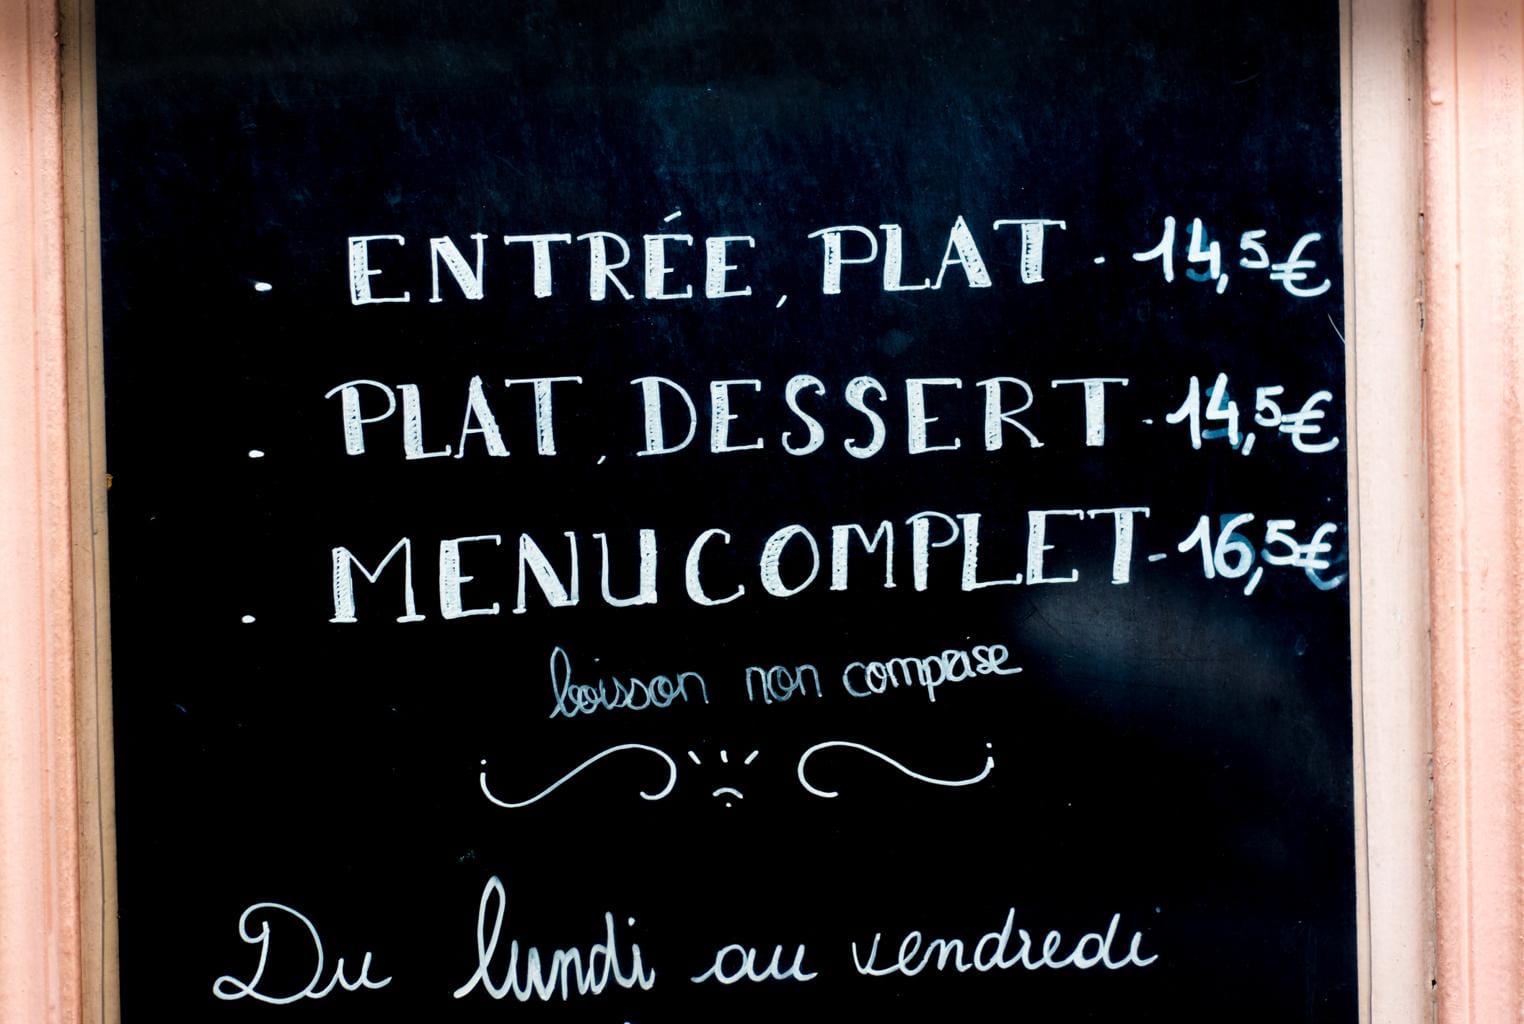 . ENTRÉE, PLAT. 14,5€
. PLAT, DESSERT. 14,5€
. MENU COMPLET- 16,5€
boisson non comprise
Du lundi au vendredi